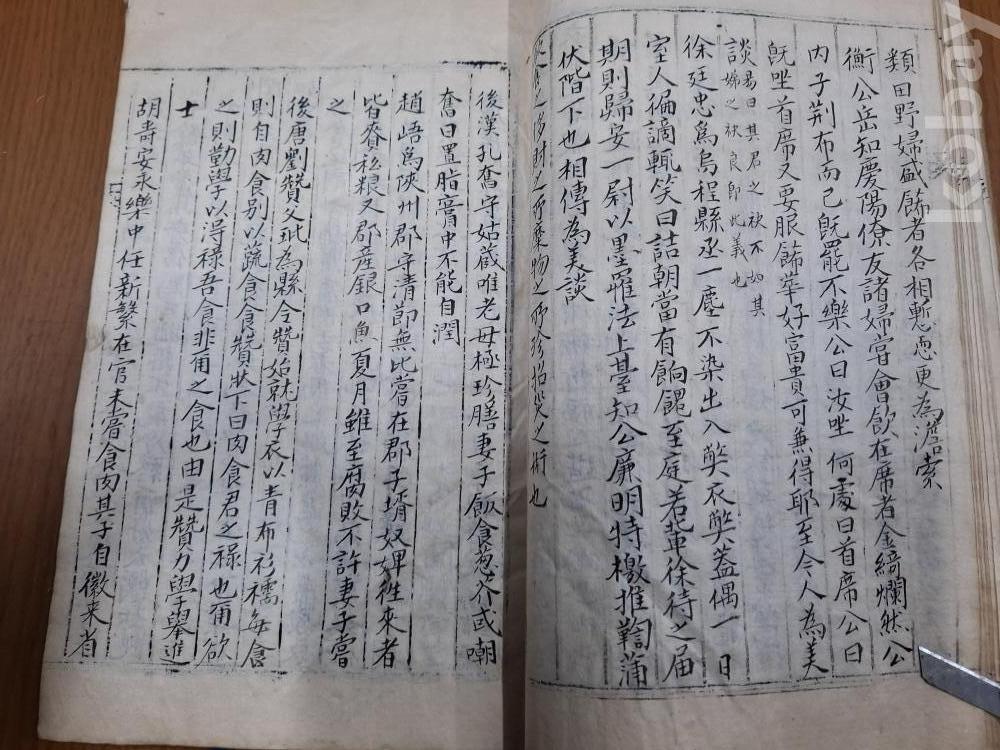 類田野婦盛餙者各相慙恧更為澹索
衡公岳知慶陽僚友諸婦嘗會飲在席者金綺爛然公
内子荆布而已旣罷不樂公曰汝坐何處曰首席公曰
旣坐首席又要服餙華好富貴可兼得耶至今人為美
談易曰其君之袂不如其
娣之袂良即此義也
徐廷忠為烏程縣丞一塵不染出入獘衣獘蓋偶一日
室人徧謫輒笑曰詰朝當有餉饋至庭若輩徐待之届
期則歸安一尉以墨罹法上臺知公廉明特檄推鞫蒲
伏階下也相傳為美談
之所珍招災之術也
後漢孔奮守姑蔵唯老母極珍膳妻子飯食葱介或嘲
奮曰置脂膏中不能自潤
趙峿為陜州郡守清節無比嘗在郡子壻奴婢徃來者
皆賫私粮又郡産銀口魚夏月雖至腐敗不許妻子嘗
之
後唐劉贊父玭為縣令贊始就學衣以青布衫襦每食
則自肉食别以蔬食食贊牀下曰肉食君之禄也甭欲
之則勤學以淂禄吾食非甭之食也由是贊力學舉進
士
胡壽安永樂中任新蘩在官未嘗食肉其子自徽来省
kobay